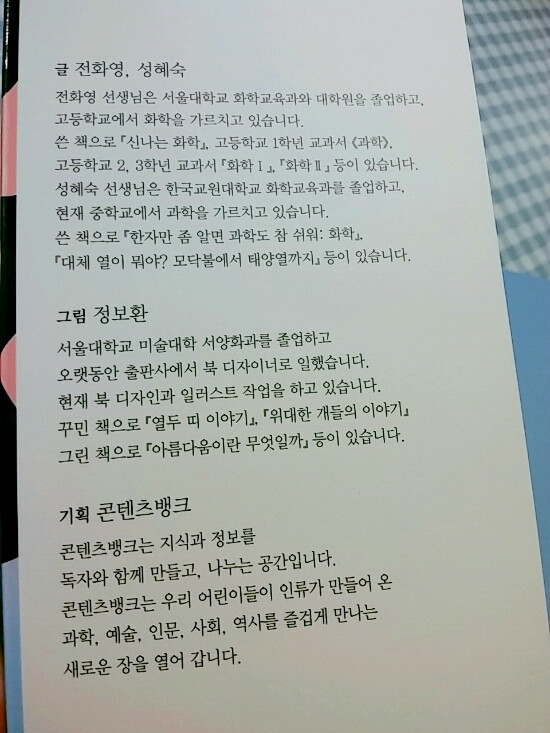 글 전화영, 성혜숙
전화영 선생님은 서울대학교 화학교육과와 대학원을 졸업하고,
고등학교에서 화학을 가르치고 있습니다.
쓴 책으로 『신나는 화학』, 고등학교 1학년 교과서 《과학》,
고등학교 2, 3학년 교과서 『화학Ⅰ』, 『화학Ⅱ』 등이 있습니다.
성혜숙 선생님은 한국교원대학교 화학교육과를 졸업하고,
현재 중학교에서 과학을 가르치고 있습니다.
쓴 책으로 『한자만 좀 알면 과학도 참 쉬워: 화학』,
『대체 열이 뭐야? 모닥불에서 태양열까지』 등이 있습니다.
그림 정보환
서울대학교 미술대학 서양화과를 졸업하고
오랫동안 출판사에서 북 디자이너로 일했습니다.
현재 북 디자인과 일러스트 작업을 하고 있습니다.
꾸민 책으로 『열두 띠 이야기』, 『위대한 개들의 이야기』
그린 책으로 『아름다움이란 무엇일까』 등이 있습니다.
기획 콘텐츠뱅크
콘텐츠뱅크는 지식과 정보를
독자와 함께 만들고, 나누는 공간입니다.
콘텐츠뱅크는 우리 어린이들이 인류가 만들어 온
과학, 예술, 인문, 사회, 역사를 즐겁게 만나는
새로운 장을 열어 갑니다.